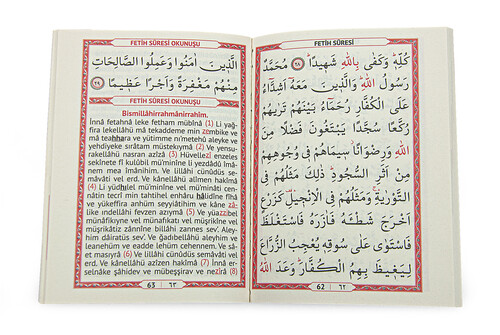 FETİH SÛRESİ
كُلِّهِ وَكَفٰى بِاللّٰهِ شَهٖيدًا ﴿٢٨﴾ مُحَمَّدٌ
رَسُولُ اللّٰهِ وَالَّذٖينَ مَعَهُٓ اَشِدَّٓاءُ
عَلَى الْكُفَّارِ رُحَمَٓاءُ بَيْنَهُمْ تَرٰيهُمْ
رُكَّعًا سُجَّدًا يَبْتَغُونَ فَضْلًا مِنَ
اللّٰهِ وَرِضْوَانًا سٖيمَاهُمْ فٖى وُجُوهِهِمْ
مِنْ اَثَرِ السُّجُودِ ذٰلِكَ مَثَلُهُمْ فِى
التَّوْرٰيةِ وَمَثَلُهُمْ فِى الْاِنْجٖيلِ كَزَرْعٍ
اَخْرَجَ شَطْـَٔهُ فَاٰزَرَهُ فَاسْتَغْلَظَ
فَاسْتَوٰى عَلٰى سُوقِهٖ يُعْجِبُ الزُّرَّاعَ
لِيَغٖيظَ بِهِمُ الْكُفَّارَ وَعَدَ اللّٰهُ
62 ٦٢
FETİH SÛRESİ OKUNUŞU
الَّذٖينَ اٰمَنُوا وَعَمِلُوا الصَّالِحَاتِ
مِنْهُمْ مَغْفِرَةً وَاَجْرًا عَظٖيمًا ﴿٢٩﴾
FETİH SÛRESİ OKUNUŞU
Bismillâhirrahmânirrahîm.
İnnâ fetahnâ leke fetham mübînâ (1) Li yağ-
fira lekellâhü mâ tekaddeme min zembike ve
mâ teahhara ve yütimme ni'metehû aleyke ve
yehdiyeke sırâtam müstekıymâ (2) Ve yensu-
rakellâhü nasran azîzâ (3) Hüvellezî enzeles
sekînete fî kulûbil mü'minîne li yezdâdû îmâ-
nem mea îmânihim. Ve lillâhi cünûdüs semâ-
vâti vel erd. Ve kânellâhü alîmen hakîmâ
(4) Li yüdhılel mü'minîne vel mü'minâti cen-
nâtin tecrî min tahtihel enhâru hâlidîne fîhâ
ve yükeffira anhüm seyyiâtihim ve kâne zâ-
like indellâhi fevzen azîymâ (5) Ve yüazzibel
münâfikıyne vel münâfikâti vel müşrikîne vel
müşrikâtiz zânnîne billâhi zannes sev'. Aley-
him dâiratüs sev'. Ve ğadıbellâhü aleyhim ve
leanehüm ve eadde lehüm cehennem. Ve sâ-
et masıyrâ (6) Ve lillâhi cünûdüs semâvâti vel
erd. Ve kânellâhü azîzen hakîmâ (7) İnnâ er-
selnâke şâhidev ve mübeşşirav ve nezîrâ (8)
63 ٦٣